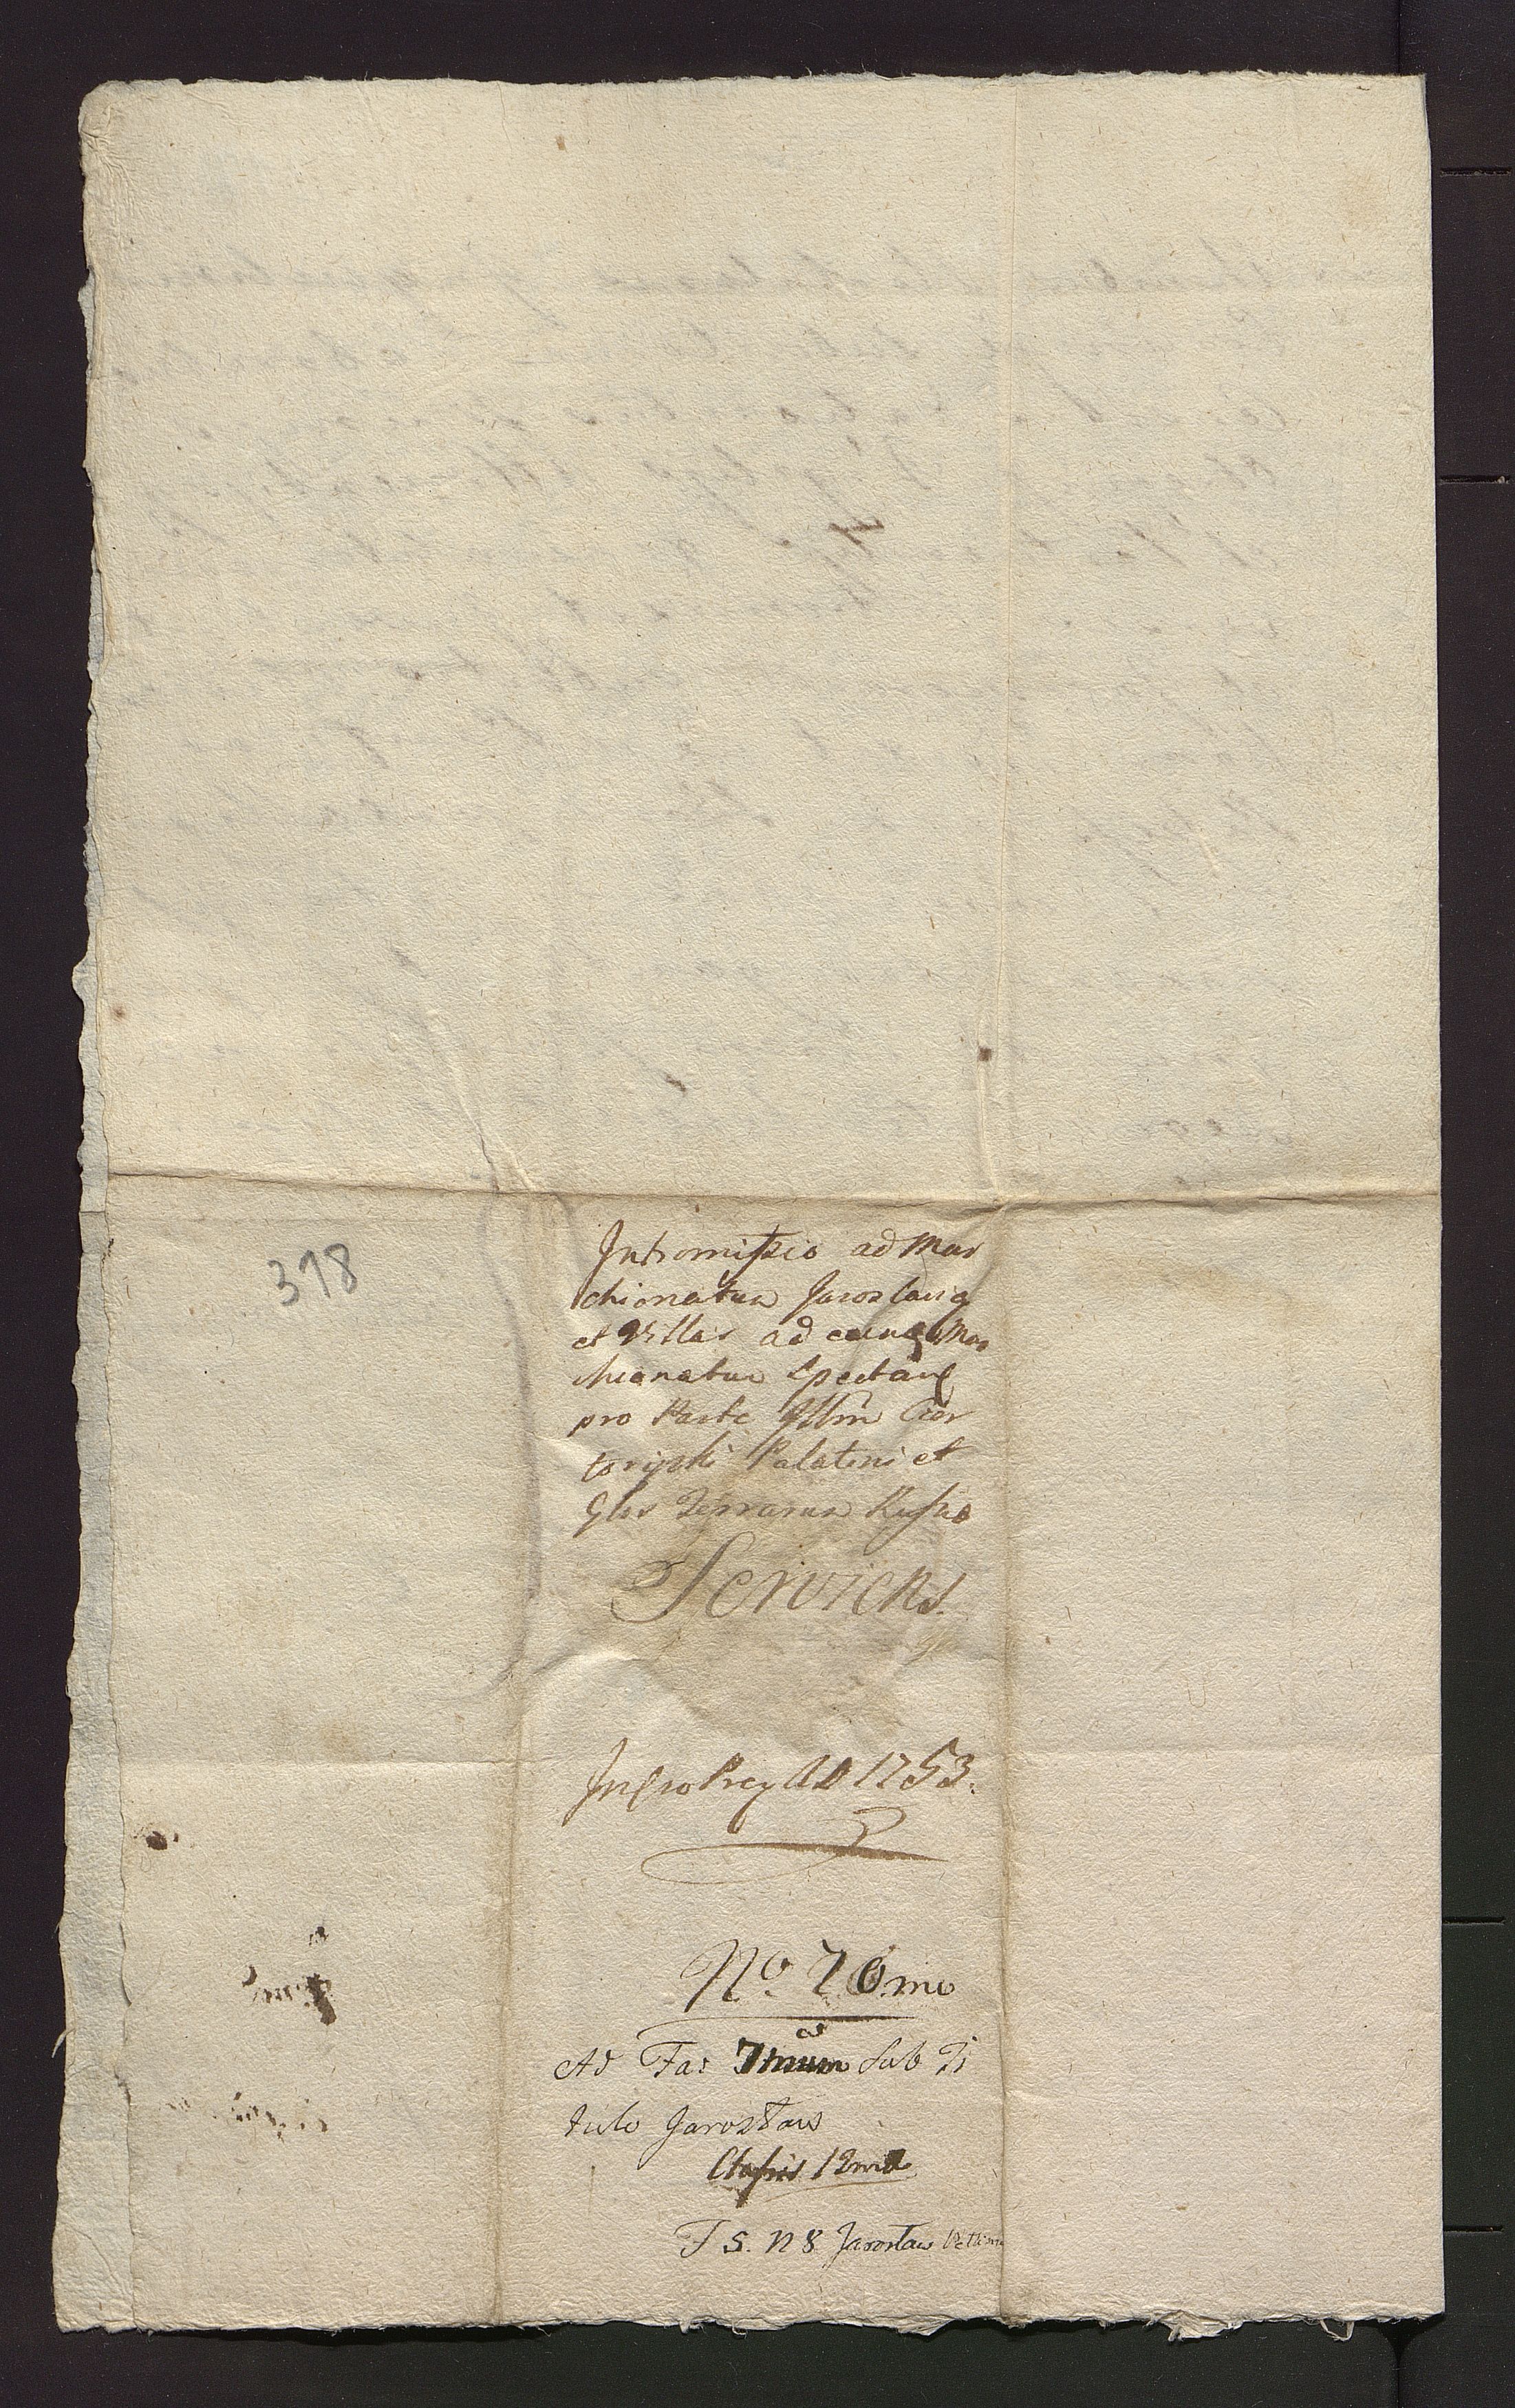 378
Intromissio ad Mar
chionatum Jaroslaviẽ
et Villas ad eund Mar
chionatum Spectañ
pro Parte Illm̃ Czar
toryski Palatini et
Glis Terrarum Russiæ
Serviens.
A D 1753.
No. 76.mo
Ad Fas Imum Sub Ti
tulo Jarosław
Classis 12mæ
F 5. N 8 Jarosław